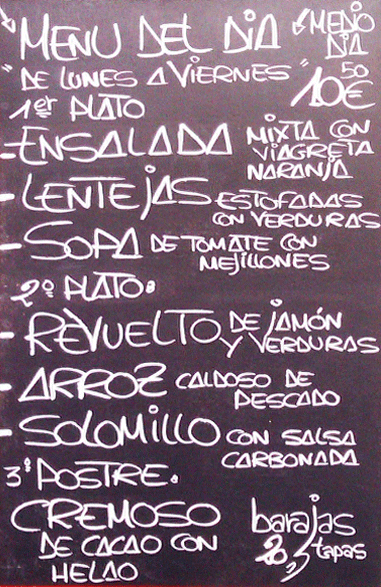 MENU DEL DIA
MEDIO DIA
"DE LUNES A VIERNES"
10 50 €
1er PLATO
- ENSALADA MIXTA CON
VIAGRETA
NARANJA
- LENTEJAS ESTOFADAS
CON VERDURAS
- SOPA DE TOMATE CON
MEJILLONES
2º PLATO.
- REVUELTO DE JAMÓN
Y VERDURAS
- ARROZ CALDOSO DE
PESCADO
- SOLOMILLO CON SALSA
CARBONADA
3º POSTRE.
CREMOSO
DE CACAO CON
HELAO
barajas
tapas